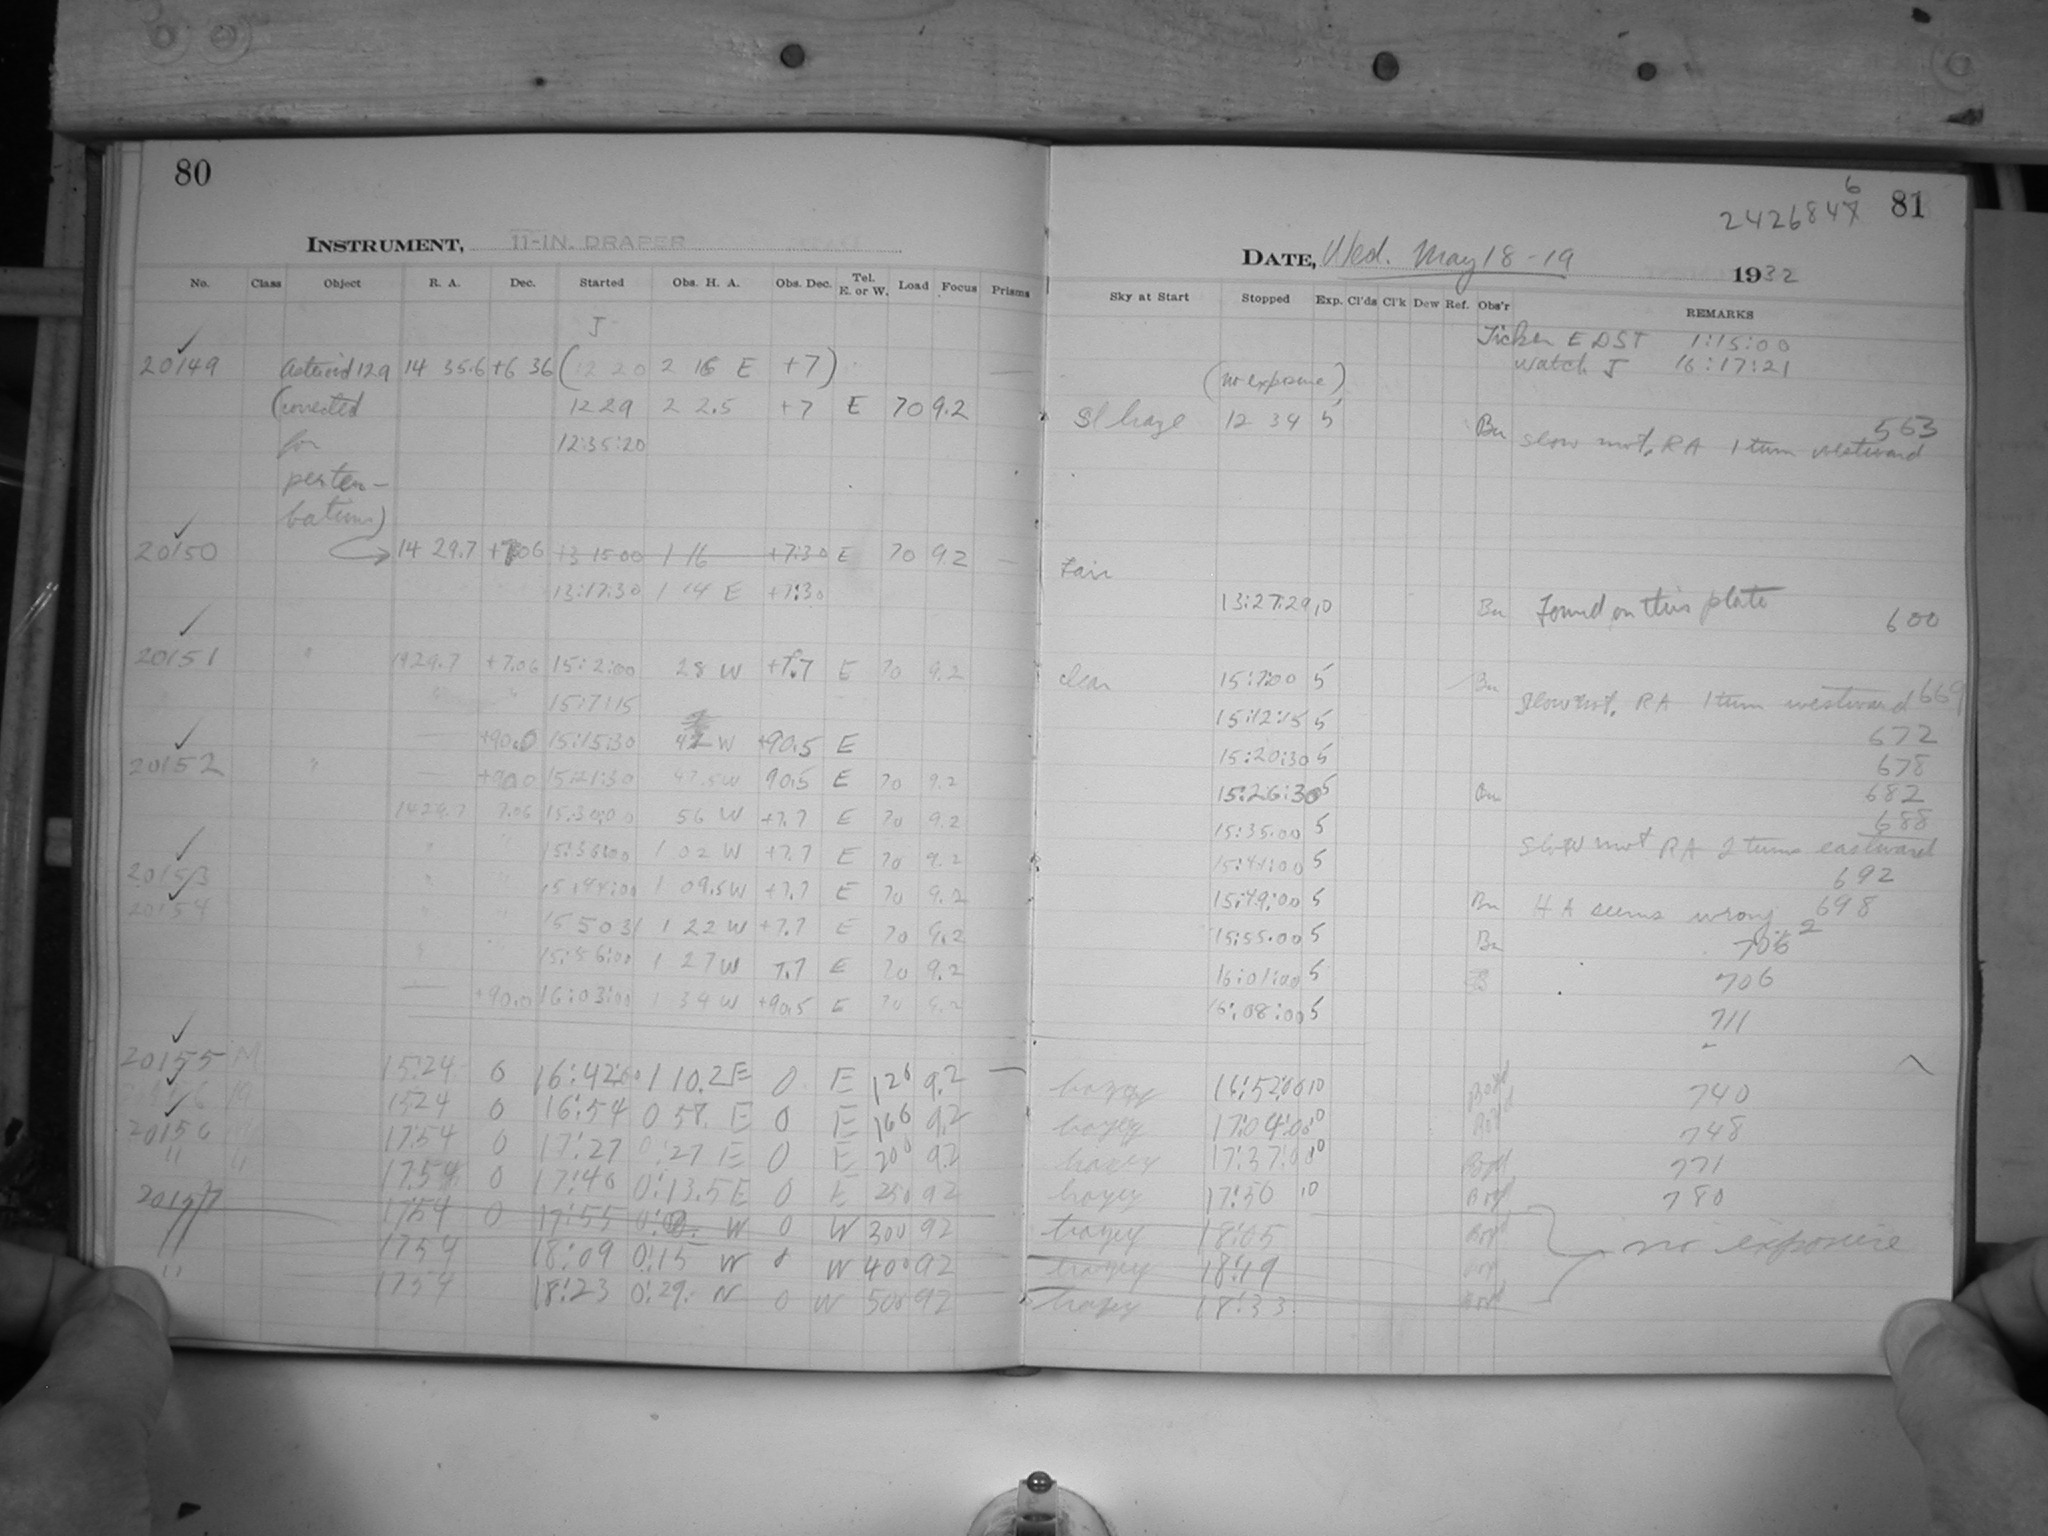 80
INSTRUMENT, 11-IN. DRAPER
No. Class Object R. A. Dec. Started Obs. H. A. Obs. Dec. Tel. E. or W. Load Focus Prisms
J
20149 Asteroid 129 14 35.6 +6 36 (12 20 2 16 E +7) —
(corrected 12 29 2 2.5 +7 E 70 9.2
for 12:35:20
pertur-
bations)
20150 14 29.7 +7 06 +3 15 00 1 16 +7:30 E 70 9.2 —
13:17:30 1 14 E +7:30
20151 " 1429.7 +7.06 15:2:00 28 W +7.7 E 70 9.2
" " 15:7:15
— +90.0 15:15:30 42 W +90.5 E
20152 " — +90.0 15:21:30 47.5W 90.5 E 70 9.2
1429.7 7.06 15:30:00 56 W +7.7 E 70 9.2
" " 15:36:00 1 02 W +7.7 E 70 9.2
20153 " " 15:44:00 1 09.5W +7.7 E 70 9.2
20154 " " 15 50 31 1 22 W +7.7 E 70 9.2
" " 15:56:00 1 27 W 7.7 E 70 9.2
— +90.0 16:03:00 1 34 W +90.5 E 70 9.2
20155 M 15:24 0 16:42:00 1 10.2E 0 E 120 9.2 —
1524 0 16:54 0 58. E 0 E 160 9.2
20156 17:54 0 17:27 0:27 E 0 E 200 9.2
" " 17.54 0 17:40 0:13.5E 0 E 250 92
20157 17:54 0 17:55 W 0 W 300 92
" 1754 18:09 0:15 W 0 W 400 92
" 1754 18:23 0:29. W 0 W 500 92
2426846 81
DATE, Wed. May 18-19 1932
Sky at Start Stopped Exp. Cl'ds Cl'k Dew Ref. Obs'r REMARKS
Ticker EDST 1:15:00
Watch J 16:17:21
(no exposure)
Sl haze 12 34 5 Bu 563
slow mot. RA 1 turn westward
Fair
13:27:29 10 Bu Found on this plate 600
clear 15:7:00 5 Bu slow mot. RA 1 turn westward 669
15:12:15 5 672
15:20:30 5 678
15:26:30 5 Bu 682
15:35:00 5 688
slow mot RA 2 turns eastward
15:41:00 5 692
15:49:00 5 Bu HA seems wrong 698
15:55:00 5 Bu 706 2
16:01:00 5 B 706
16:08:00 5 711
hazy 16:52:00 10 Boyd 740
hazy 17:04:00 10 Boyd 748
hazy 17:37:00 10 Boyd 771
hazy 17:50 10 Boyd 780
hazy 18:05 Boyd no exposure
hazy 18:19 Boyd
hazy 18:33 Boyd